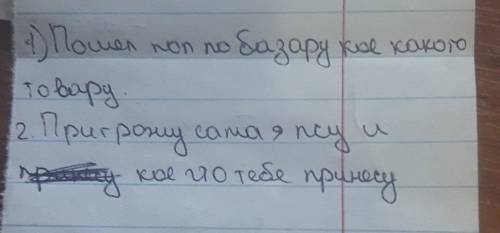 1) Пошел поп по базару кое какого
товару.
2. Пригрожу сама я псу и
кое что тебе принесу